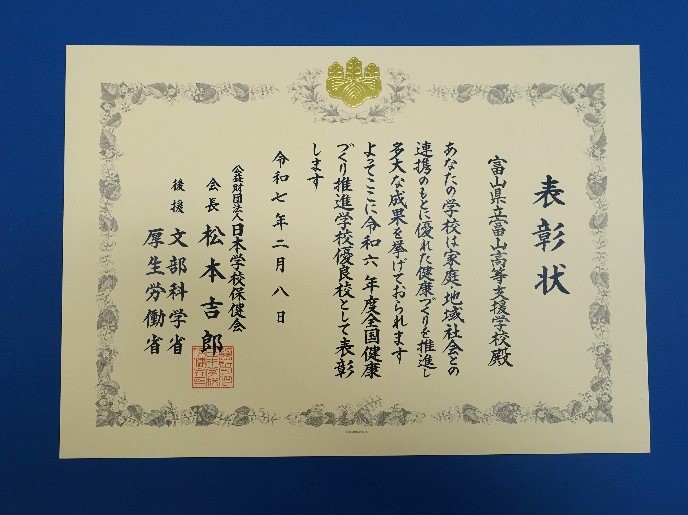 表彰状
富山県立富山高等支援学校殿
あなたの学校は家庭・地域社会との
連携のもとに優れた健康づくりを推進し
多大な成果を挙げておられます
よってここに令和六年度全国健康
づくり推進学校優良校として表彰
します
令和七年二月八日
公益財団法人日本学校保健会
会長 松本吉郎
後援 文部科学省
厚生労働省